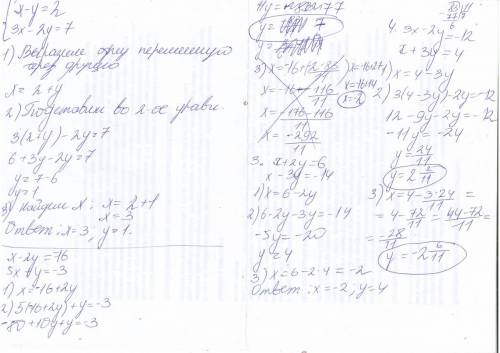 { x-y=2
3x-2y=7
1) Выразим одну переменную
через другую
x=2+y
2) Подставим во 2-ое уравн.
3(2+y)-2y=7
6+3y-2y=7
y=7-6
y=1
3) найдём x: x=2+1
x=3
Ответ: x=3, y=1.
x-2y=-16
5x+y=-3
1) x=-16+2y
2) 5(-16+2y)+y=-3
-80+10y+y=-3
11y=77
y=7
3) x=-16+2·7
x=-16+14
x=-2
x=-292/11
3. x+2y=6
x-3y=-14
1) x=6-2y
2) 6-2y-3y=-14
-5y=-20
y=4
3) x=6-2·4=-2
Ответ: x=-2, y=4
4. 3x-2y=-12
x+3y=4
1) x=4-3y
2) 3(4-3y)-2y=-12
12-9y-2y=-12
-11y=-24
y=24/11
y=2 2/11
3) x=4-3·24/11=
=4-72/11=44-72/11=
=-28/11
y=-2 6/11